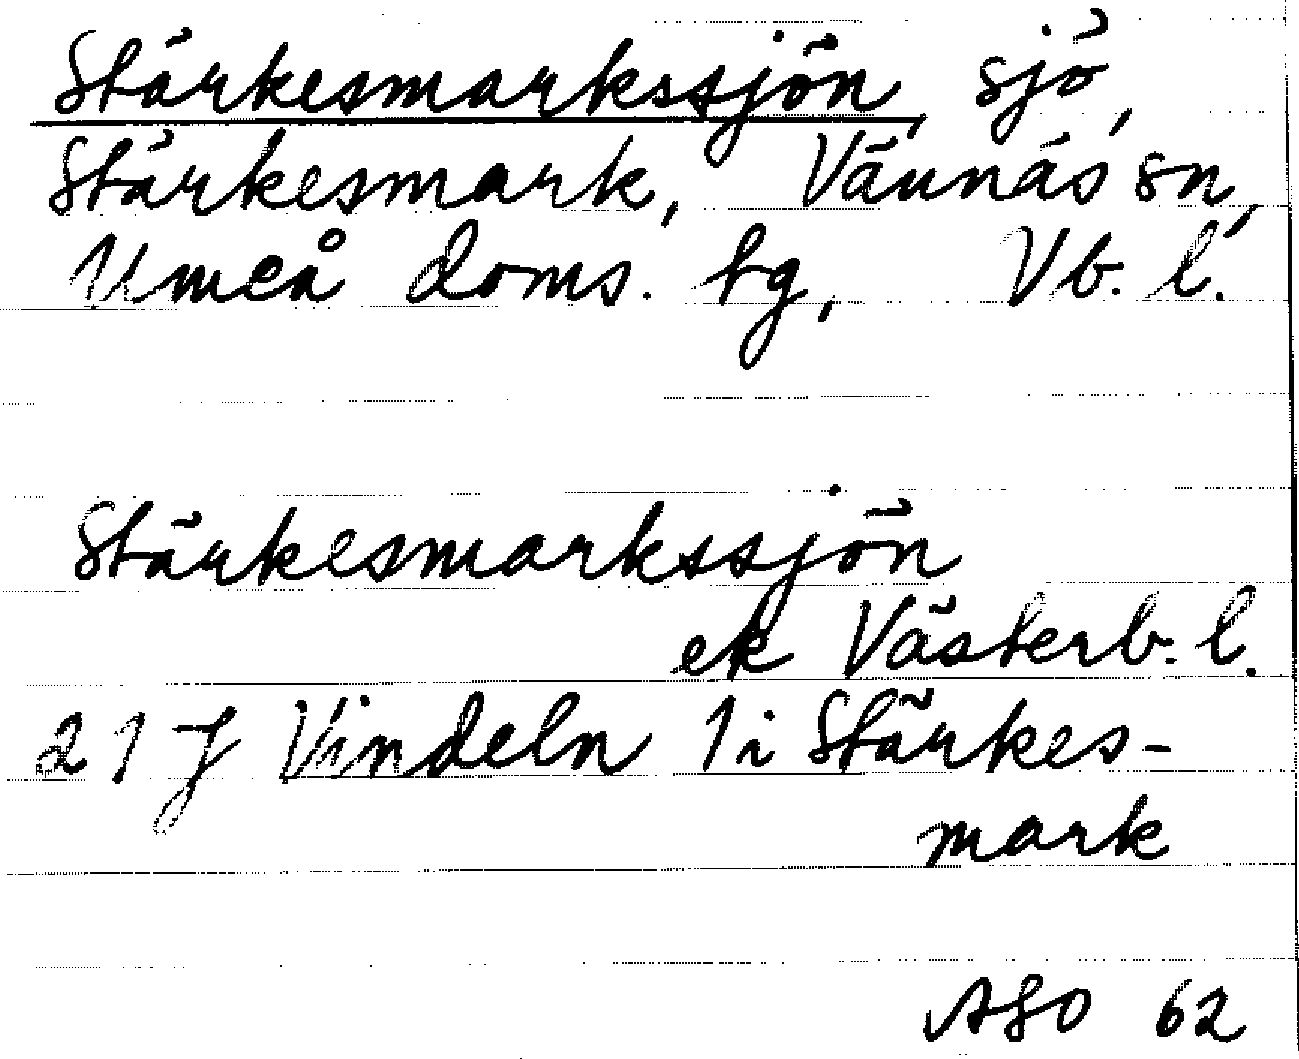 Stärkesmarkssjön, sjö,
Stärkesmark, Vännäs sn,
Umeå doms. tg, Vb. l.
Stärkesmarkssjön
ek Västerb. l.
21 J Vindeln 1i Stärkes-
mark
ASO 62